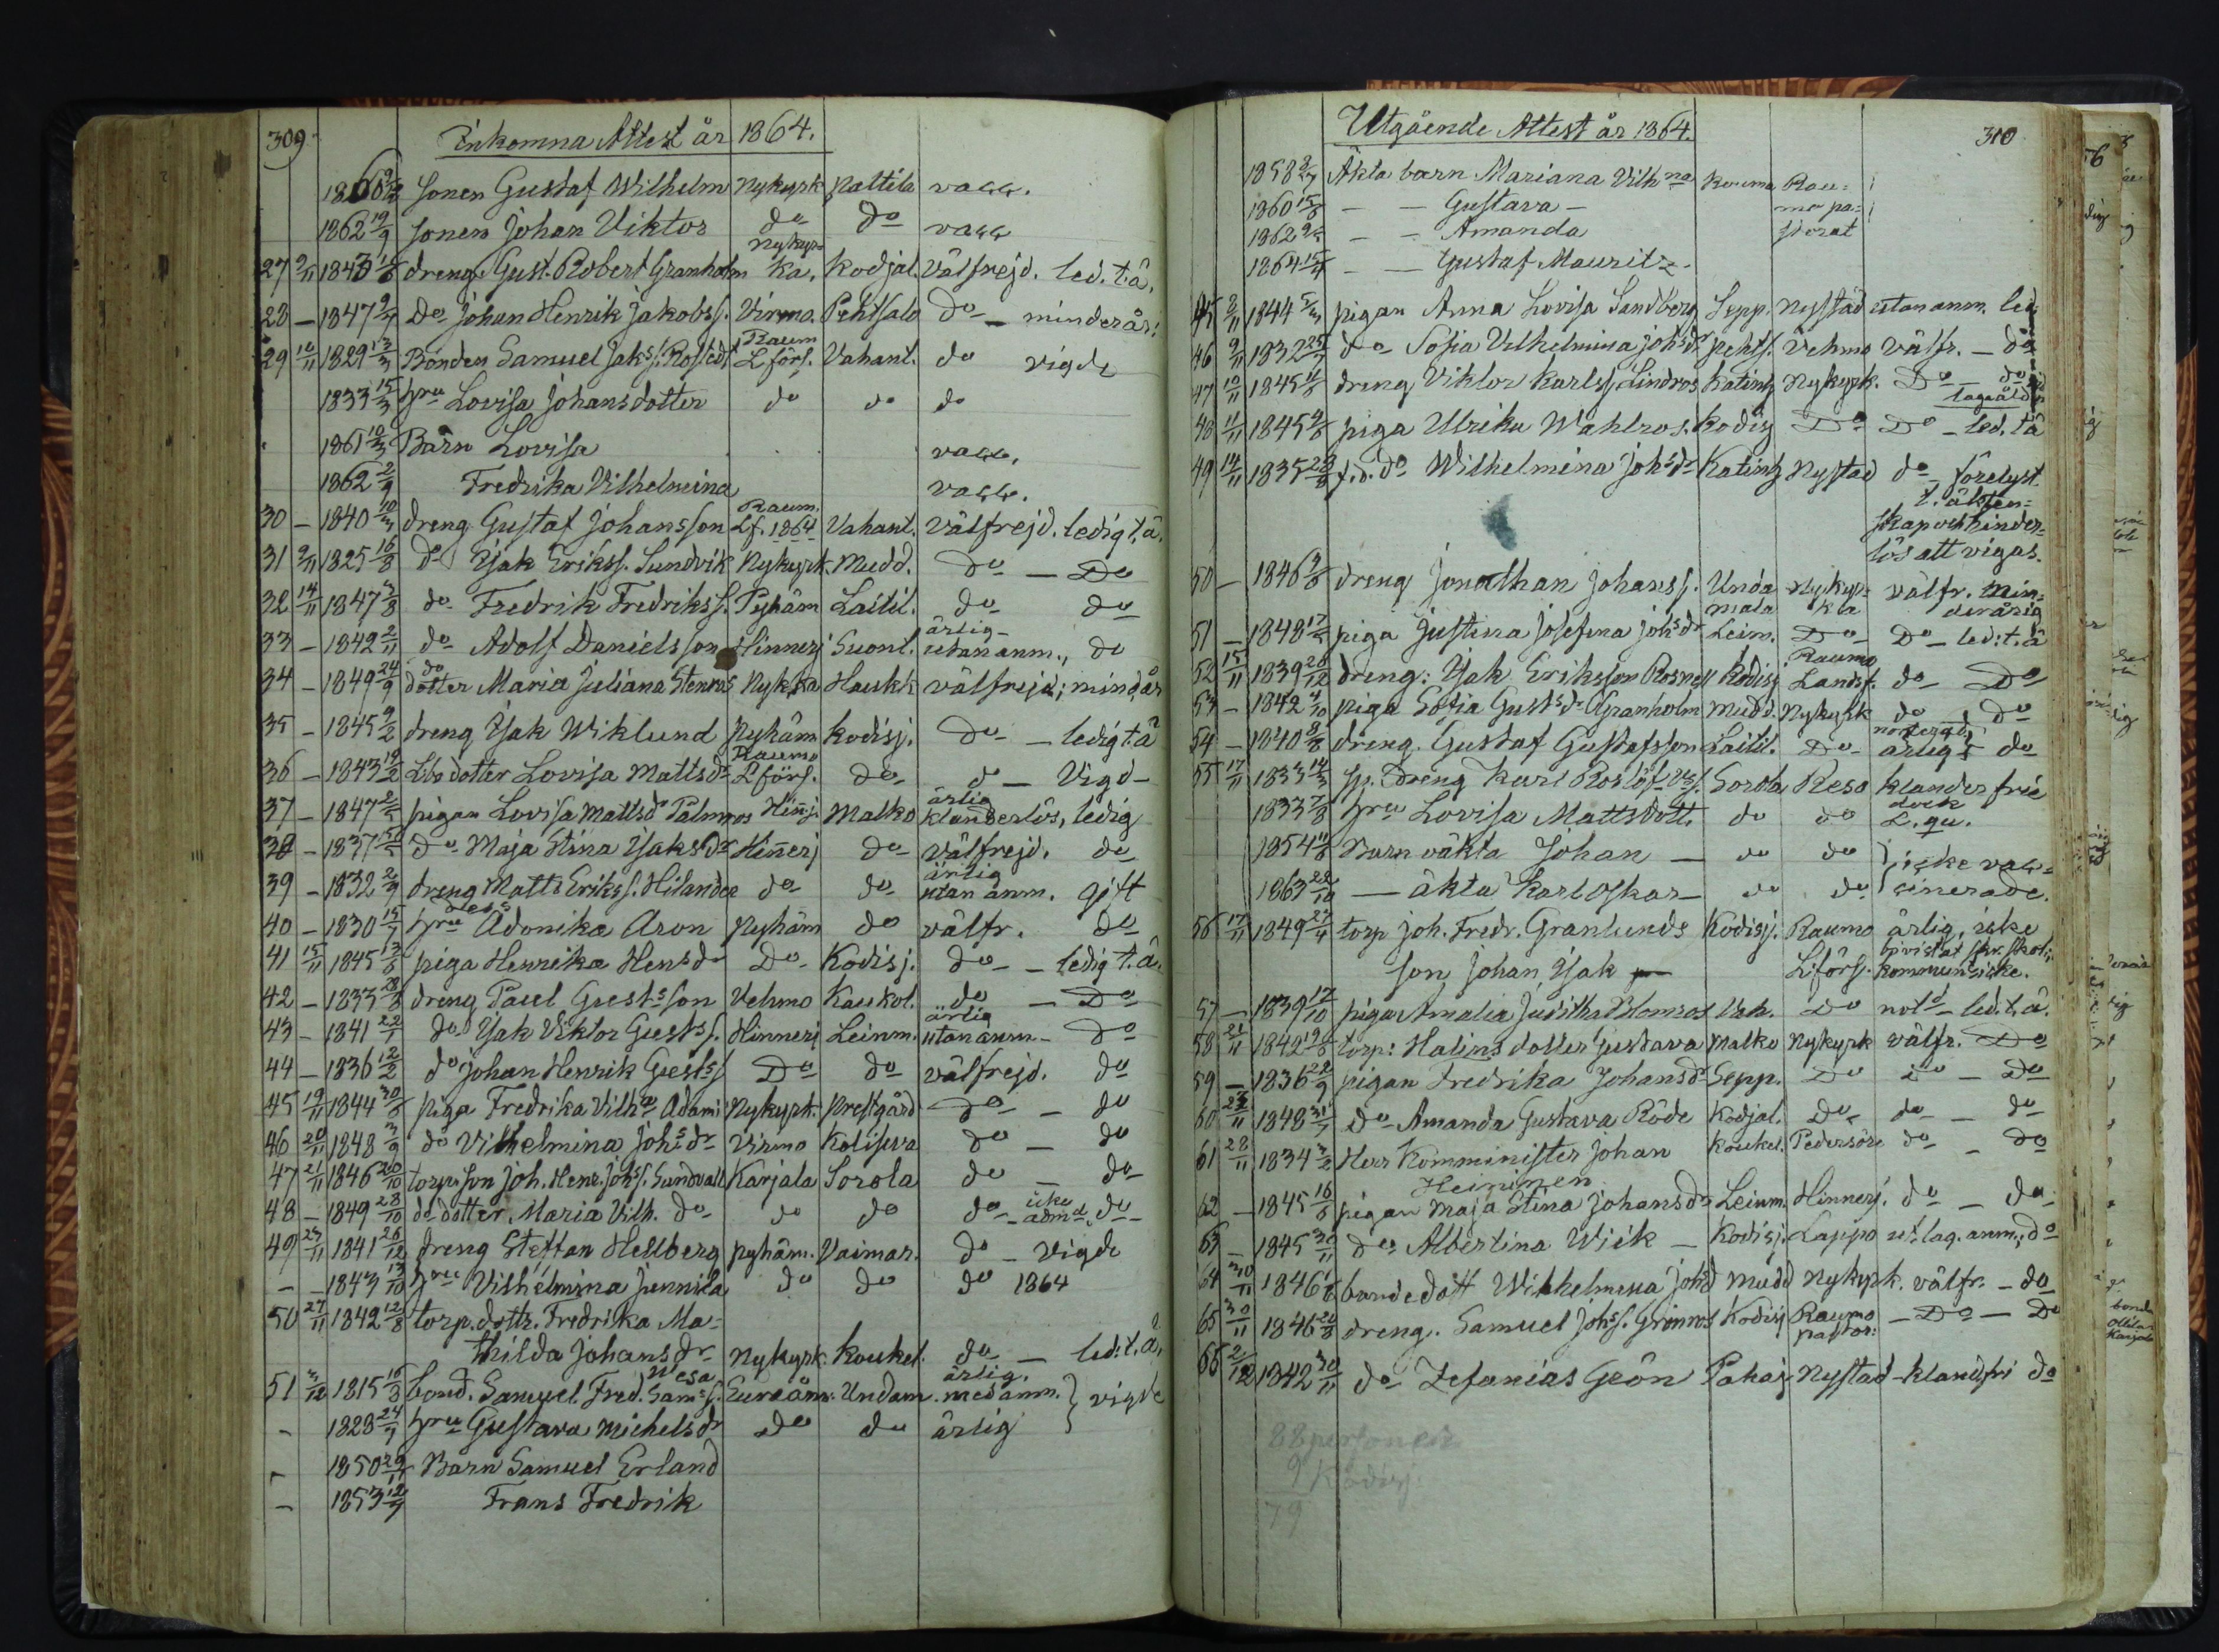 309
Inkomna Attest år 1864.
1860 sonen Gustaf Wilhelm Nykyrk Paltila vacc.
1862 19/9 sonen Johan Viktor do do vacc
Nykyr=
27 9/11 1843 dreng. Gust. Robert Granholm ka. Kodjal. välfrejd. led. t.ä.
28 — 1847 do Johan Henrik Jakobss. Virmo. Pehtsalo do — minderår:
Raum
29 10/11 1829 13/3 Bonden Samuel Jakss. Rostedt L förs. Vahant. do vigde
1833 15/3 hru Lovisa Johansdotter do do do
1861 10/3 Barn Lovisa vacc.
1862 2/9 Fredrika Vilhelmina vacc.
Raum.
30 — 1840 10/3 dreng Gustaf Johansson Lf. 1864 Vahant. välfrejd. ledig t.ä.
31 9/11 1825 16/8 do Isak Erikss. Sundvik Nykyrk. Mudd. do — Do
32 14/11 1847 3/8 do Fredrik Fredrikss. Pyhäm Laitil. do do
ärlig —
33 — 1842 2/11 do Adolf Danielsson Hinnerj Suont. utan anm., do
do
34 — 1849 24/9 dotter Maria Juliana Stenros Nykka Haukk välfrejd; mind,år
35 — 1845 9/2 dreng Isak Wiklund Pyhäm Kodisj. Do — ledig t.ä
Raumo
36 — 1843 19/2 Lbo dotter Lovisa Mattsdr L förs. do do — Vigd —
ärlig
37 — 1847 pigan Lovisa Mattsdr Palmros Hinnj. Malko klanderlös, ledig
38 — 1837 do Maja Stina Isaksdr Hinerj do välfrejd. do
ärlig
39 — 1832 2/9 dreng Matts Erikss. Hilander do do utan anm. gift
dess
40 — 1830 15/7 hru Adonika Aron Pyhäm do välfr. do
41 15/11 1845 piga Henrika Hensdr Do Kodisj. do — ledig t.ä.
42 — 1833 28/8 dreng Paul Gustsson Vehmo Kaukol. do — Do
ärlig
43 — 1841 22/7 do Isak Viktor Gustss. Hinnerj Leinm. utan anm — do
44 — 1836 12/2 do Johan Henrik Gustss Do do välfrejd. do
45 19/11 1844 30/5 piga Fredrika Vilhna Adami Nykyrk. Prestgård do — do
46 20/11 1848 3/9 do Vilhelmina Johsdr Virmo Koliseva do — do
47 21/11 1846 20/10 torp. son Joh. Henr. Johss. Sundvall Karjala Sorola do — do
icke
48 — 1849 28/10 do dotter Maria Vilh. do do do do — admd, do
49 23/11 1841 26/12 dreng Steffan Hellberg Pyhäm. Vaimar. do — vigde
— — 1843 13/10 hru Vilhelmina Jennika do do do 1864
50 27/11 1842 12/8 torp. dottr. Fredrika Ma=
thilda Johansdr Nykyrk. Koukel. do — led: t.ä.
Wesa ärlig.
51 3/12 1815 16/3 bond. Samuel Fred. Samss. Euraåm: Undam. med anm. } vigde
— 1828 24/7 hru Gustava Michelsdr do do ärlig
— 1850 29/11 Barn Samuel Erland
— 1853 12/7 Frans Fredrik
Utgående Attest år 1864.
310
1858 3/7 Äkta barn Mariana Vilhna Kouma Rau=
1860 15/8 — — Gustava — mo pa=
1862 — — Amanda storat
1864 15/4 — — Gustaf Mauritz —
45 2/11 1844 5/3 pigan Anna Lovisa Sandberg Sepp. Nystad utan anm. led.
46 9/11 1832 do Sofia Vilhelmina Johsdr Pehts. Vehmo välfr. — do
47 10/11 1845 dreng Viktor Karlss. Lindros Katinh Nykyrk. Do — do
lagaåld
48 11/11 1845 piga Ulrika Wahlros. Kodisj Do Do — led. t.ä
49 14/11 1835 28/8 f.d. do Wilhelmina Johsdr Katinh Nystad do — förelyst.
t. äkten=
skap och hinder=
lös att vigas.
50 — 1846 dreng Jonathan Johanss. Unda Nykyr= välfr. Min=
mala kka derårig
51 — 1848 piga Justina Josefina Johsdr Leim. Do Do — led: t.ä
Raumo
52 15/11 1839 26/12 dreng: Isak Eriksson Rosnell Kodisj Landsf. do Do
53 — 1842 4/10 piga Sofia Gustsdr Granholm Mudd. Nykyrk do — do
54 — 1840 8/8 dreng. Gustaf Gustafsson Laitil. Do ärligt do
55 17/11 1833 14/3 sp. dreng Karl Roslöf Sorola Reso klander frie
dock
1833 7/8 hru Lovisa Mattsdott. do do L. qv.
1854 Barn oäkta Johan — do do } icke vac=
1863 28/10 — äkta Karl Oskar — do do cinerade.
56 17/11 1849 torp Joh. Fredr. Granlunds Kodisj. Raumo ärlig, icke
bivistat skr. skol;
son Johan Isak L förs. kommun: icke.
57 — 1839 17/10 piga Amalia Juditha Blomros Vah. Do notd — led. t.ä.
58 21/11 1842 torp: Halins dotter Gustava Malko Nykyrk välfr. Do
59 — 1836 28/9 pigan Fredrika Johansdr Sepp. Do Do — Do
60 1848 do Amanda Gustava Röde Kodjal. Do do — do
61 28/11 1834 3/2 Herr Komminister Johan Koukel. Pedersöre do — do
Heininen
62 — 1845 pigan Maja Stina Johansdr Leinm. Hinnerj. do — do
63 — 1845 30/11 do Albertina Wiik — Kodisj. Lappo ut. lag. anm.; do
64 30/11 1846 bondedott Wilhelmina Johsd Mudd Nykyrk. välfr. — do
65 30/11 1846 dreng. Samuel Johss. Grönros Kodisj Raumo — Do — Do
pastor:
66 2/12 1842 30/11 do Zefanias Geôn Pahaj Nystad — klandfri do
88 personer
9 Kodisj.
79